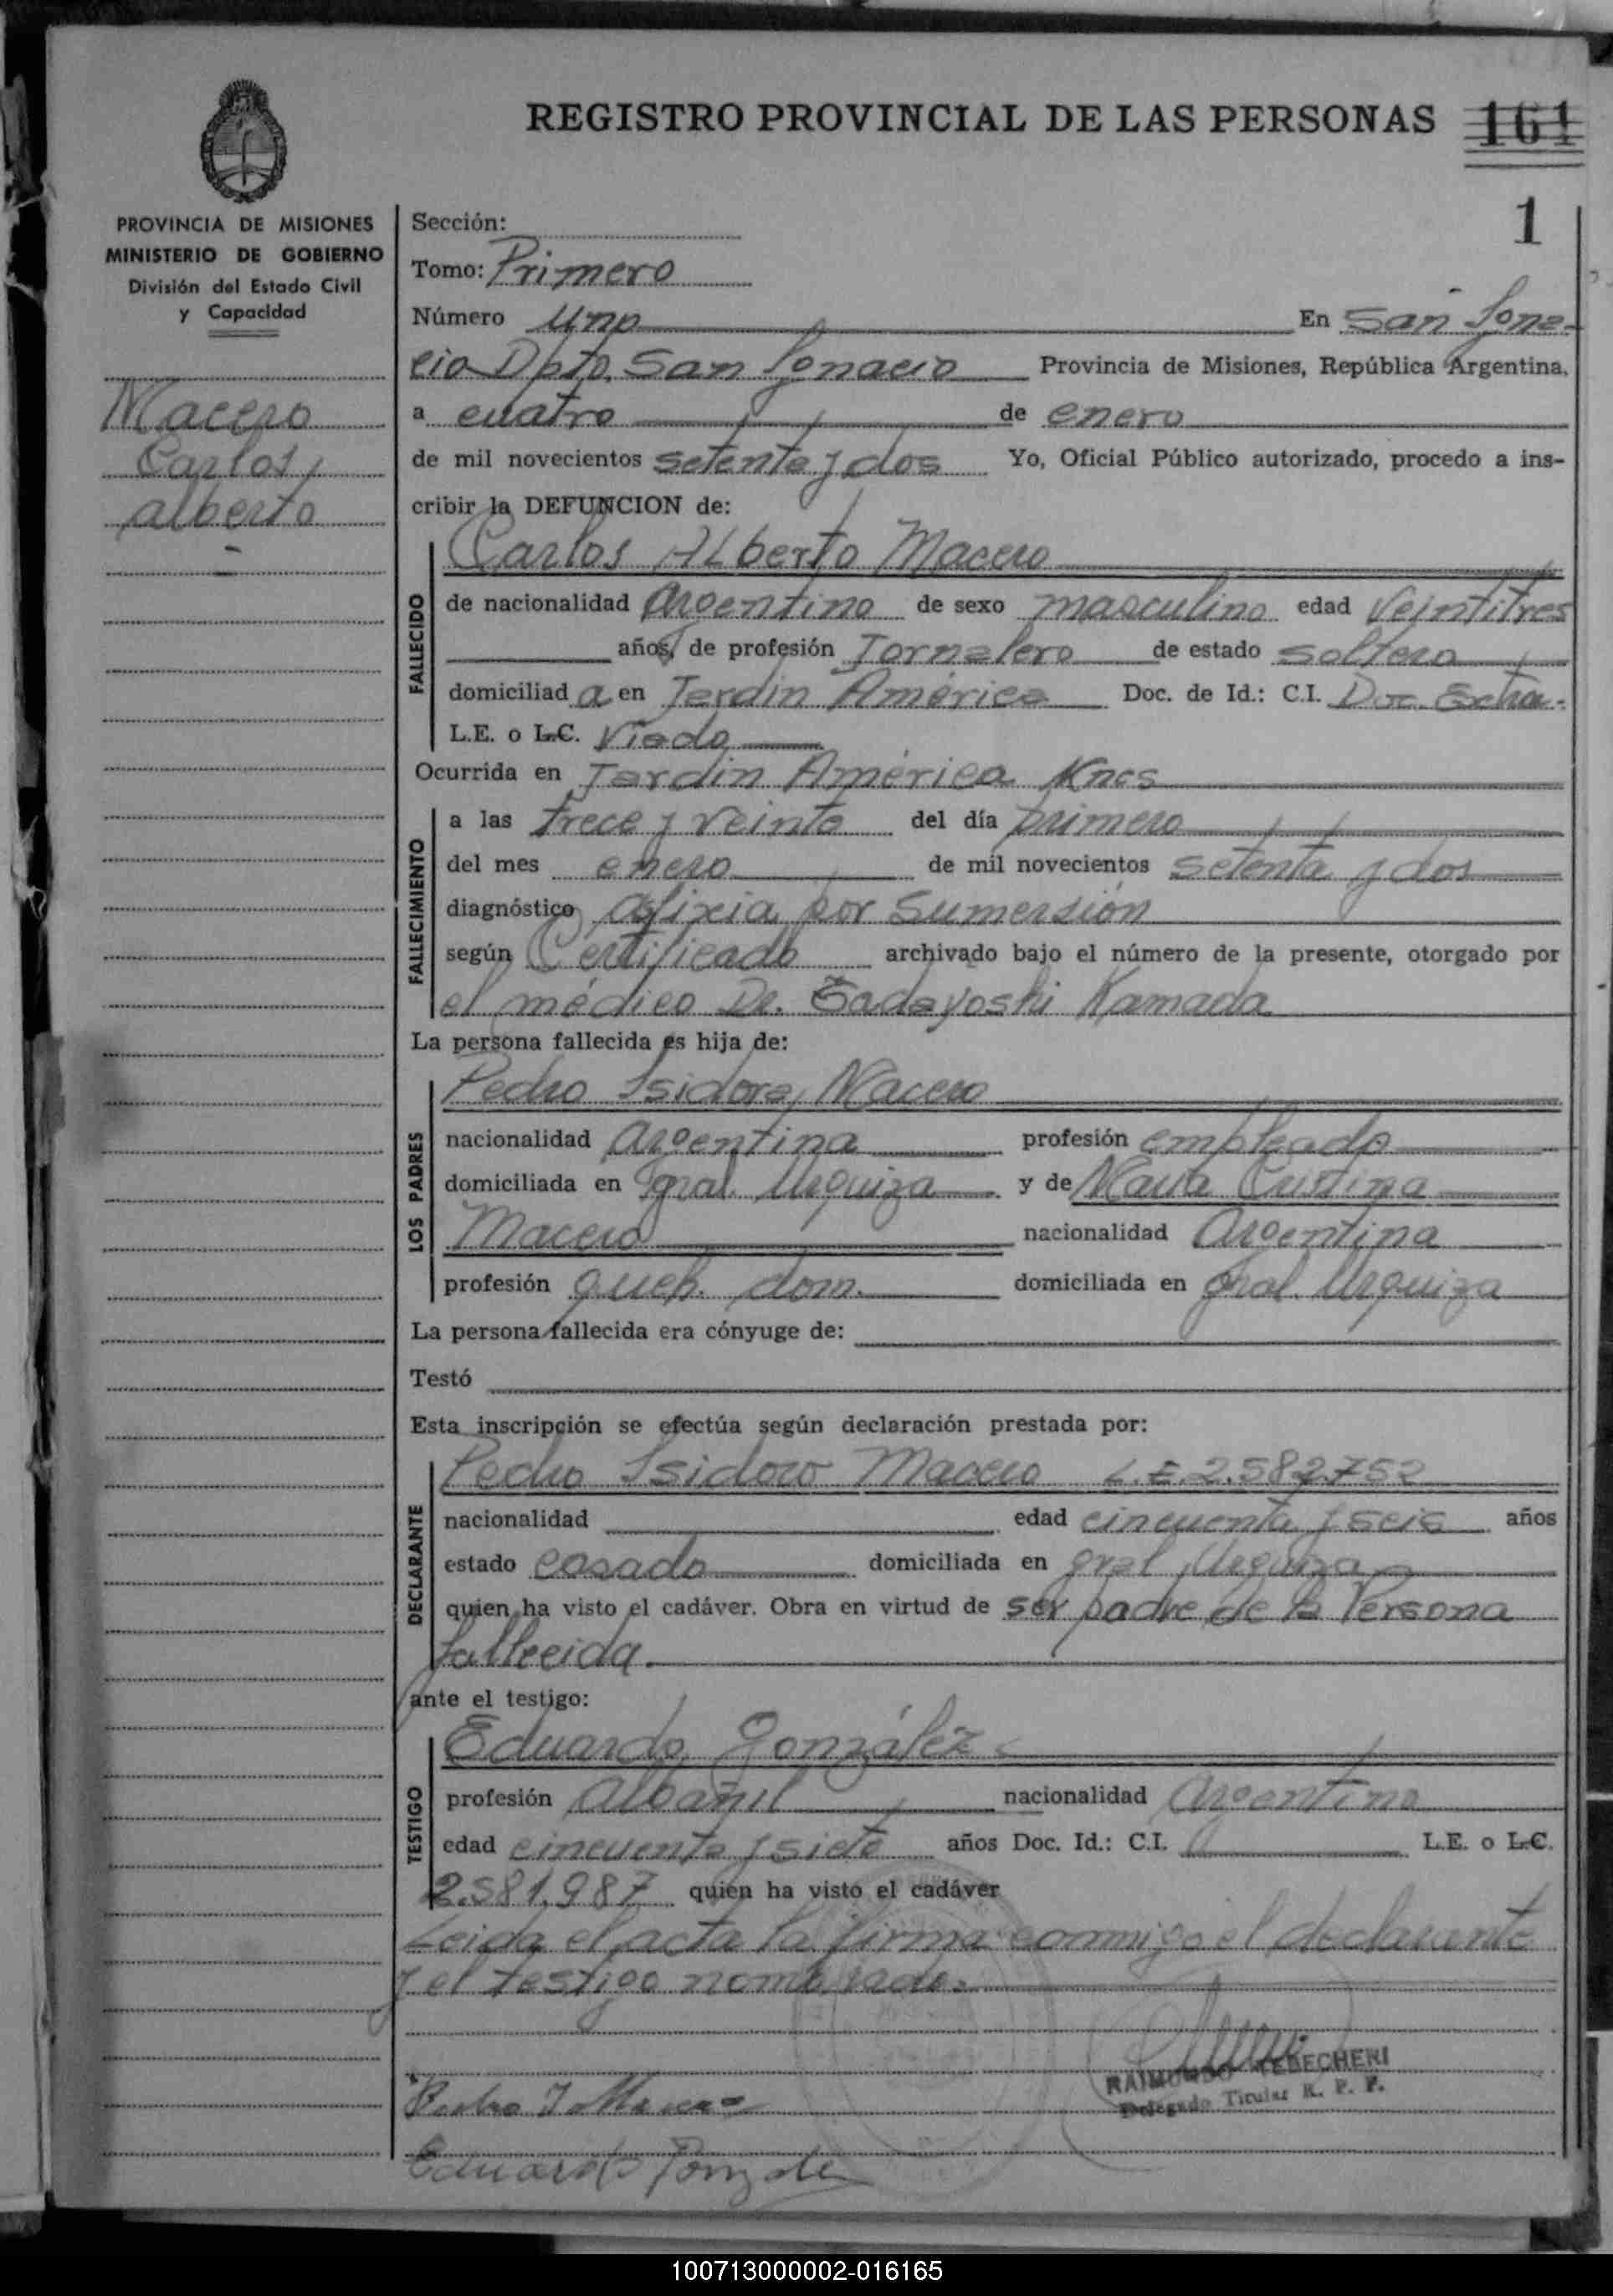 REGISTRO PROVINCIAL DE LAS PERSONAS 161
1
PROVINCIA DE MISIONES
MINISTERIO DE GOBIERNO
División del Estado Civil
y Capacidad
Macero
Carlos
alberto
Sección:
Tomo: Primero
Número uno En San Igna-
cio Dpto. San Ignacio Provincia de Misiones, República Argentina,
a cuatro de enero
de mil novecientos setenta y dos Yo, Oficial Público autorizado, procedo a ins-
cribir la DEFUNCION de:
Carlos Alberto Macero
FALLECIDO
de nacionalidad Argentino de sexo masculino edad Veintitres
años, de profesión Jornalero de estado soltero
domiciliad a en Jardin América Doc. de Id.: C.I. Doc. Extra-
L.E. o L.C. Viado
Ocurrida en Jardin América
FALLECIMIENTO
a las trece y veinte del día primero
del mes enero de mil novecientos setenta y dos
diagnóstico asfixia por Sumersión
según Certificado archivado bajo el número de la presente, otorgado por
el médico Dr. Tadayoshi Kamada
La persona fallecida es hija de:
LOS PADRES
Pedro Isidoro Macero
nacionalidad Argentina profesión empleado
domiciliada en Gral. Urquiza y de María Cristina
Macero nacionalidad Argentina
profesión queh. dom. domiciliada en Gral. Urquiza
La persona fallecida era cónyuge de:
Testó
Esta inscripción se efectúa según declaración prestada por:
DECLARANTE
Pedro Isidoro Macero L.E. 2.582.752
nacionalidad edad cincuenta y seis años
estado casado domiciliada en gral Urquiza
quien ha visto el cadáver. Obra en virtud de ser padre de la Persona
fallecida.
ante el testigo:
TESTIGO
Eduardo González
profesión Albañil nacionalidad Argentino
edad cincuenta y siete años Doc. Id.: C.I. L.E. o L.C.
2.581.987 quien ha visto el cadáver
Leida el acta la firma conmigo el declarante
y el testigo nombrado.
RAIMUNDO TEBECHERI
Delegado Titular R. P. P.
Pedro I. Macero
Eduardo Gonzalez
100713000002-016165